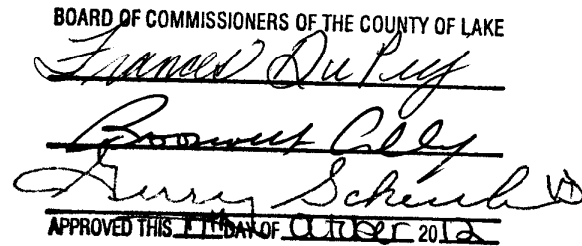 BOARD OF COMMISSIONERS OF THE COUNTY OF LAKE
Frances DuPey
Roosevelt Allen
Gerry Scheub
APPROVED THIS 17th DAY OF October 2012